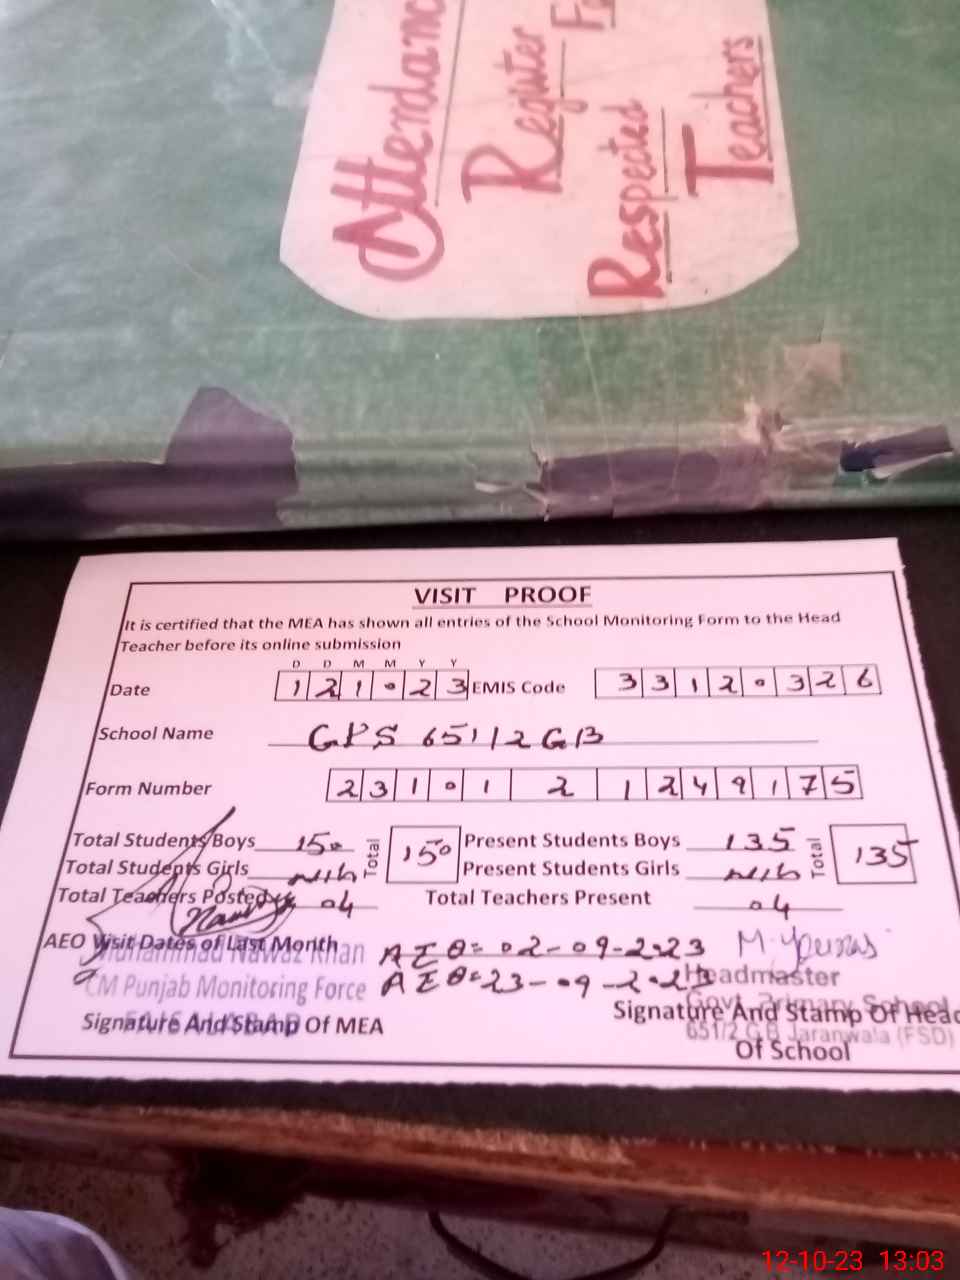 Attendanc
Register
Respected
Teachers
VISIT PROOF
It is certified that the MEA has shown all entries of the School Monitoring Form to the Head
Teacher before its online submission
D D M M Y Y
Date 1 2 1 0 2 3 EMIS Code 3 3 1 2 0 3 2 6
School Name GPS 651/2 GB
Form Number 2 3 1 0 1 2 1 2 4 9 1 7 5
Total Students Boys 150 Total 150 Present Students Boys 135 Total 135
Total Students Girls Present Students Girls
Total Teachers Posted 04 Total Teachers Present 04
AEO Visit Dates of Last Month AEO=02-09-2023
Muhammad Nawaz Khan AEO=23-09-2023 Headmaster
CM Punjab Monitoring Force Govt Primary School
FAISALABAD 651/2 G.B Jaranwala (FSD)
Signature And Stamp Of MEA Signature And Stamp Of Head
Of School
12-10-23 13:03